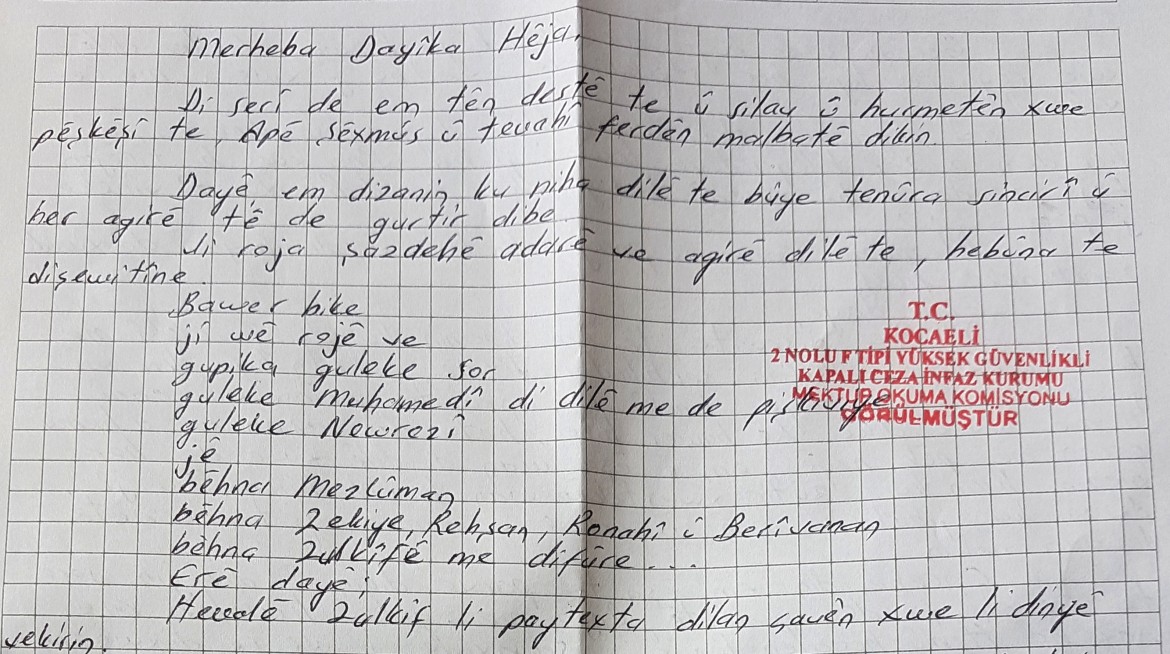 Merheba Dayîka Hêja,
Di serî de em tên destê te û silav û hurmetên xwe
pêşkêşî te, Apê Şêxmûs û tevahî ferdên malbatê dikin.
Dayê, em dizanin ku niha dilê te bûye tenûra sincirî û
her agirê tê de gurtir dibe.
Ji roja şazdehê adarê ve agirê dilê te, hebûna te
dişewitîne
Bawer bike
ji wê rojê ve
gupika guleke sor
guleke Muhamedî di dilê me de
guleke Newrezî
Jê
bêhna Mezlûman
bêhna Zekiye, Rehşan, Ronahî û Berîvanan
bêhna Zulkîfê me difûre...
Erê dayê!
Hevalê Zulkif li paytexta dilan çavên xwe li dinyê
vekirin.
T.C.
KOCAELİ
2 NOLU F TİPİ YÜKSEK GÜVENLİKLİ
KAPALI CEZA İNFAZ KURUMU
MEKTUP OKUMA KOMİSYONU
GÖRÜLMÜŞTÜR